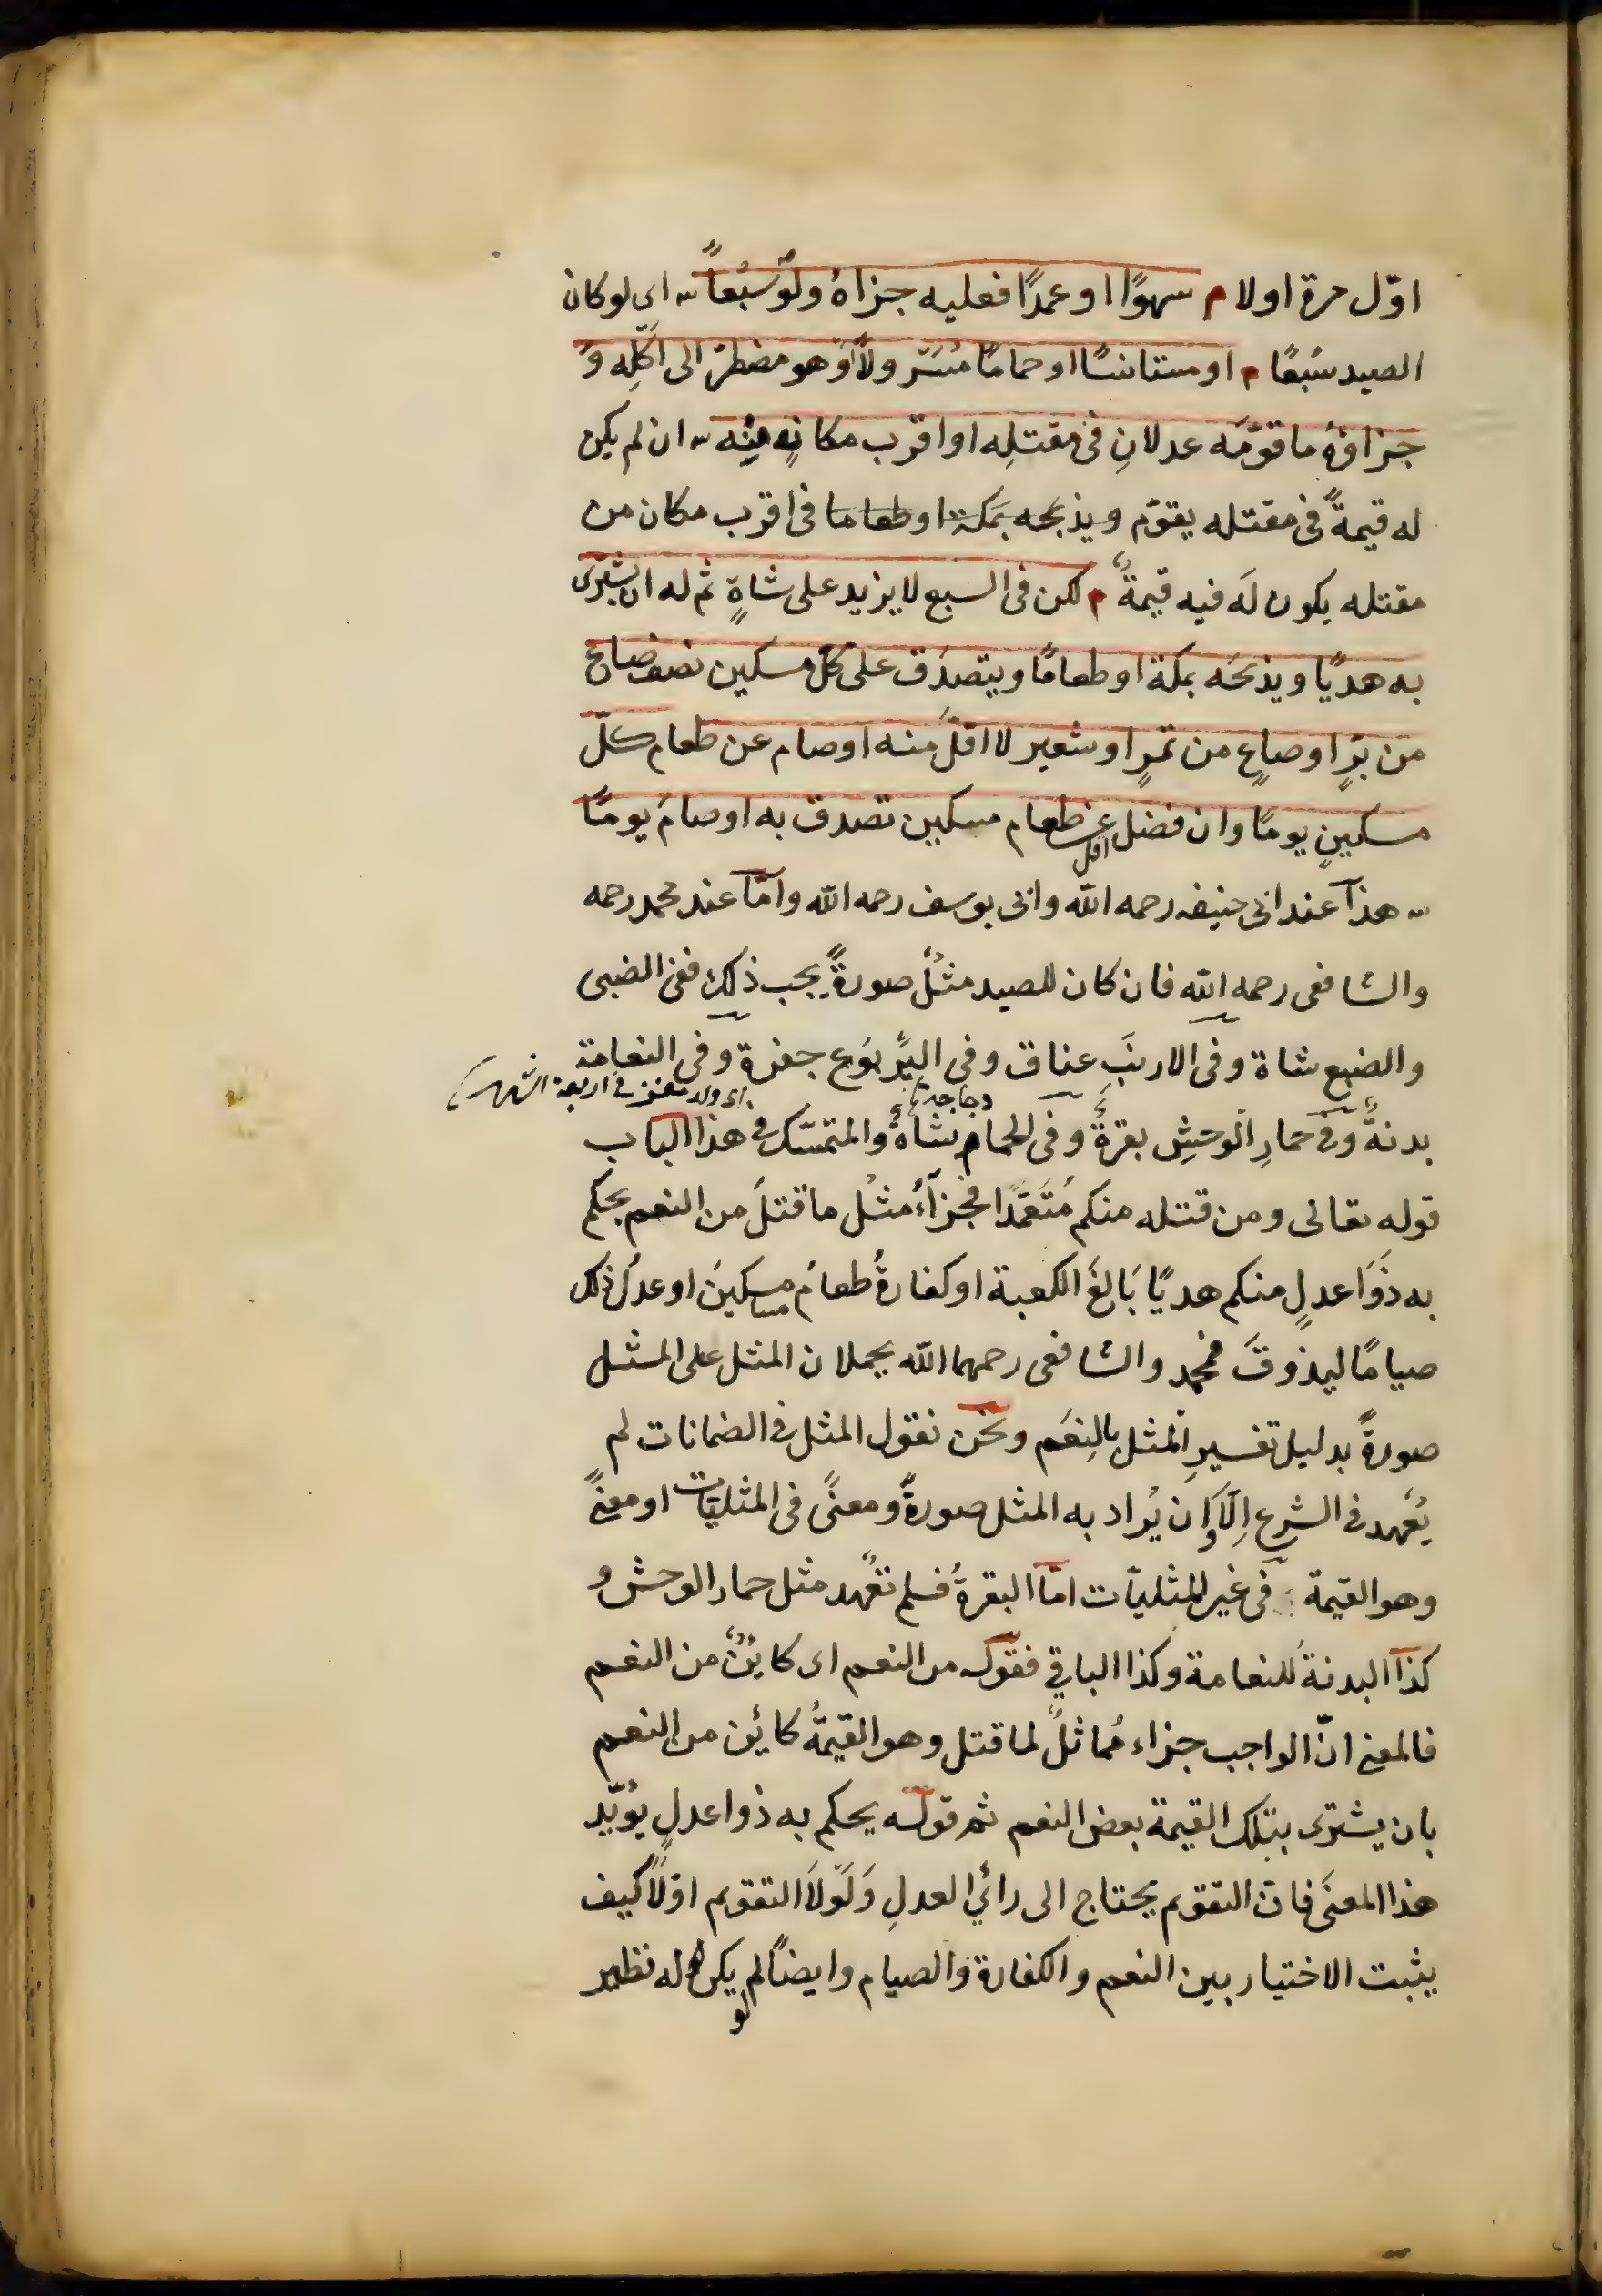 اوّل مرة اولا م سهوًا او عمدًا فعليه جزاهُ ولَو سَبُعاً ش اى لو كان
الصيد سَبُعًا م او مستانسًا او حمامًا مُسَرْوَلاً او هو مضطرّ الى اَكْلِه وَ
جزاؤهُ ما قوّمَه عدلانِ فى مقتلِه او اقرب مكانٍ منه ش ان لم يكن
له قيمةً فى مقتله يقوّم ويذبحه بمكة او طعاما فى اقرب مكان من
مقتله يكون لَه فيه قيمةً م لكن فى السبع لا يزيد على شاةٍ ثم له ان يشترى
به هديًا ويذبحَه بمكة او طعامًا ويتصدَق على كلّ مسكين نصف صاع
من بُرٍّ او صاعٍ من تمرٍ او شعير لا اقلَّ منه او صام عن طعام كلّ
مسكينٍ يومًا وان فضل عن طعام مسكين تصدق به او صامَ يومًا
اقل
ش هذا عند ابى حنيفه رحمه الله وابى يوسف رحمه الله وامّا عند محمد رحمه
والشافعى رحمه الله فان كان للصيد مثْلٌ صورةً يجب ذلك ففى الضبى
والضبع شاة وفى الارنبَ عناق وفى اليَرْبوُع جفرة وفى النعامة
اى ولد معز فى اربعة اشهر
دجاجة
بدنةٌ وفى حمارِ الوحشِ بقرةٌ وفى الحمام شاةٌ والمتمسّك فى هذا الباب
قوله تعالى ومن قتله منكم مُتَعَمِّدًا فجزآءُ مثْل ما قتلَ من النعم يحكم
به ذَوَا عدلٍ منكم هديًا بَالِغَ الكعبة او كفارةُ طعامُ مسكينَ او عدلُ ذلك
صيامًا ليذوقَ فمحمد والشافعى رحمهما الله يحملان المثل على المثل
صورةً بدليل تفسيرِ المثل بالنِعَم ونحن نقول المثل فى الضمانات لم
يُعْهد فى الشرع اِلّا وان يُراد به المثل صورةً ومعنىً فى المثليّات او معنىً
وهو القيمة فى غير المثليّات امّا البقرةُ فلم تعْهد مثل حمار الوحش و
كذا البدنةُ للنعامة وكذا الباقى فقوله من النعم اى كائنٌ من النعم
فالمعنى انّ الواجب جزاء مُماثلٌ لما قتل وهو القيمةُ كائن من النعم
بان يشترى بتلك القيمة بعض النعم ثم قوله يحكم به ذوا عدلٍ يؤيّد
هذا المعنَى فانّ التقويم يحتاج الى رأي العدلِ وَلَوْلَا التقويم اوّلاً كيف
يثبت الاختيار بين النعم والكفارة والصيام وايضًا لم يكن له نظير
لو